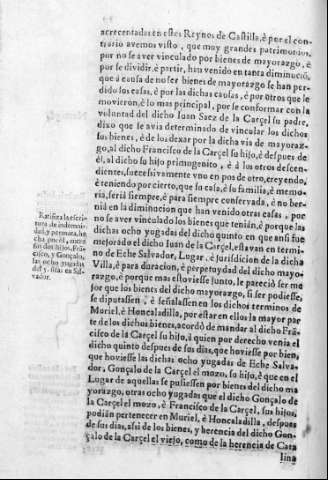 acrecentadas en estos Reynos de Castilla, è por el con-
trario avemos visto, que muy grandes patrimonios,
por no se aver vinculado por bienes de mayorazgo, è
por se dividir, è partir, han venido en tanta diminuciõ,
que à causa de no ser bienes de mayorazgo se han per-
dido los casas, è por las dichas causas, è por otros que le
movieron, è lo mas principal, por se conformar con la
voluntad del dicho Juan Saez de la Carçel su padre,
dixo que se avia determinado de vincular los dichos
sus bienes, è de los dexar por la dicha via de mayoraz-
go, al dicho Francisco de la Carçel su hijo, è despues de
èl, al dicho su hijo primogenito, è à los otros descen-
dientes, successivamente vno en pos de otro, creyendo,
è teniendo por cierto, que su casa, è su familia, è memo-
ria, serìa siempre, è para siempre conservada, è no ber-
nià en la diminucion que han venido otras casas, por
no se aver vinculado los bienes que tenian, è porque las
dichas ocho yugadas del dicho quinto en que ansi fue
mejorado el dicho Juan de la Carçel, estavan en termi-
no de Eche Salvador, Lugar, è jurisdicion de la dicha
Villa, è para duracion, è perpetuydad del dicho mayo-
razgo, è porque mas estoviesse junto, le pareciò ser me
jor que los bienes del dicho mayorazgo, si ser podiesse,
se diputassen, è señalassen en los dichos terminos de
Muriel, è Honcaladilla, por estar en ellos la mayor par
te de los dichos bienes, acordò de mandar al dicho Frã-
cisco de la Carçel su hijo, à quien por derecho venia el
dicho quinto despues de sus dias, que hoviesse por bien,
que hoviesse las dichas ocho yugadas de Eche Salva-
dor, Gonçalo de la Carçel el mozo, su hijo, è que en el
Lugar de aquellas se pusiessen por bienes del dicho ma
yorazgo, otras ocho yugadas que el dicho Gonçalo de
la Carçel el mozo, è Francisco de la Carçel, sus hijos,
podian pertenecer en Muriel, è Honcaladilla, despues
de sus dias, assi de los bienes, y herencia del dicho Gon-
çalo de la Carçel el viejo, como de la herencia de Cata
lina
Ratifica la escri-
tura de indemni-
dad, y permuta, he
cha por èl, entre
sus dos hijos, Frã-
cisco, y Gonçalo,
las ocho yugadas
del 5. sitas en Sal-
vador.